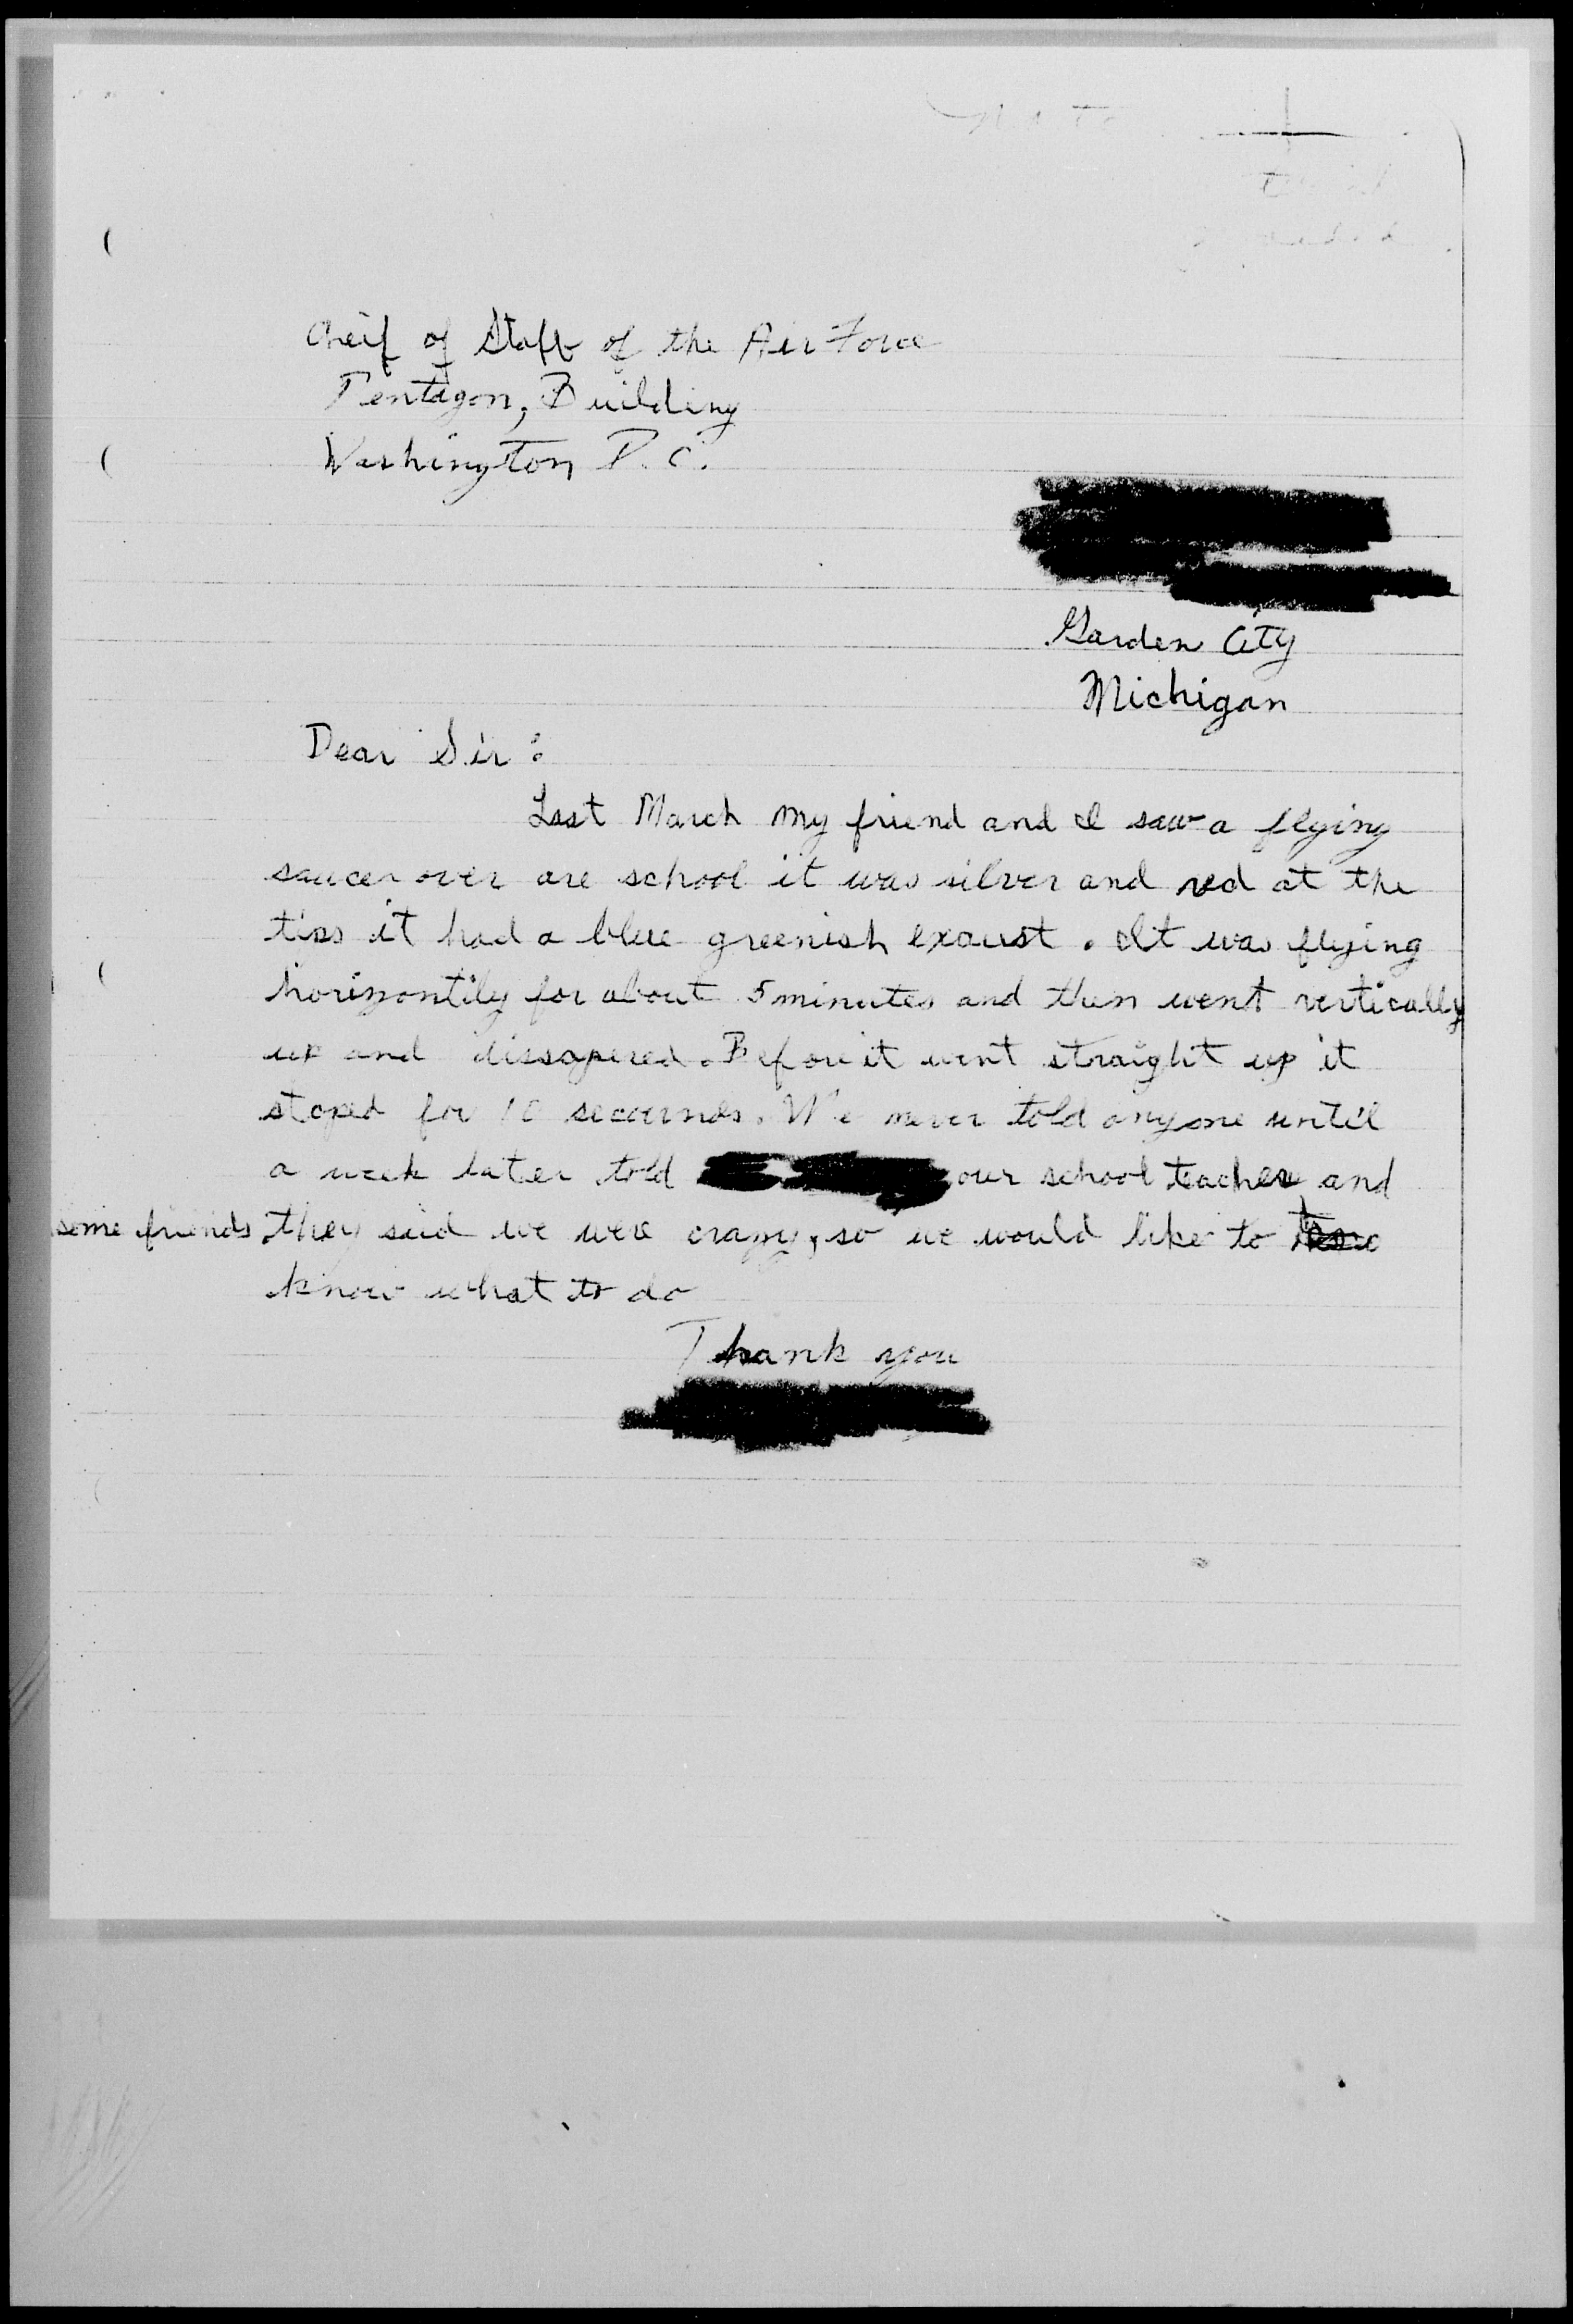 Cheif of Staff of the Air Force
Pentagon, Building
Washington D.C.
Garden City
Michigan
Dear Sir:
Last March my friend and I saw a flying
saucer over are school it was silver and red at the
tips it had a blue greenish exaust. It was flying
horizontily for about 5 minutes and then went vertically
up and dissapered. Before it went straight up it
stoped for 10 seconds. We never told anyone until
a week later told our school teacher, and
some friends they said we were crazy, so we would like to
know what to do
Thank you